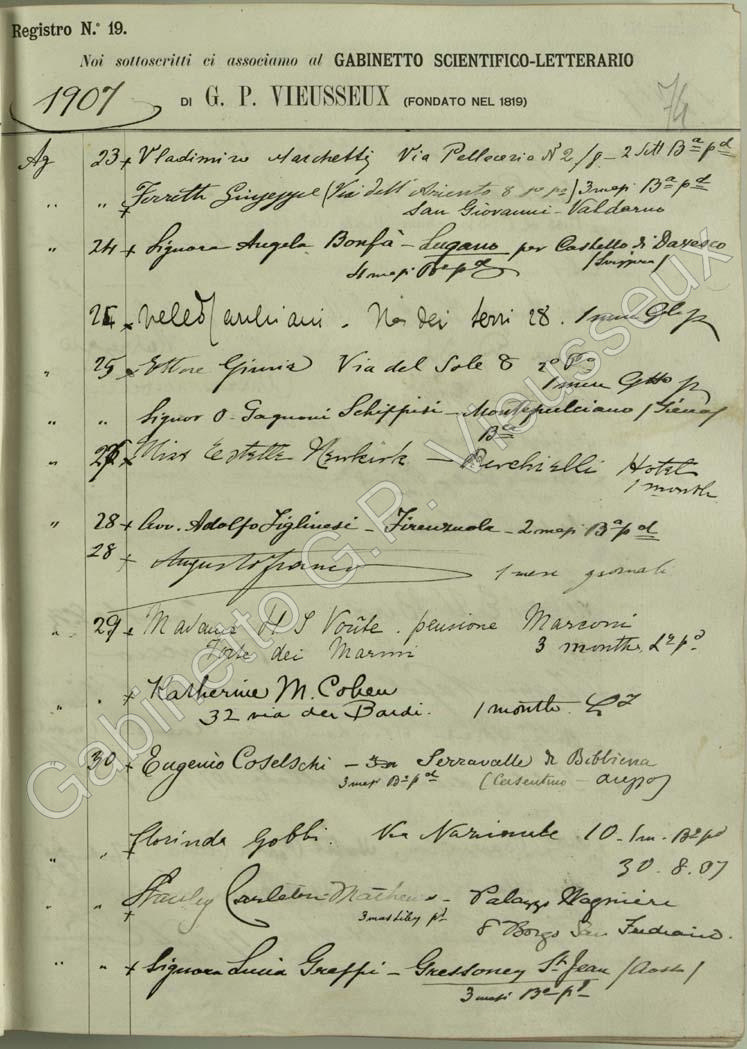 Registro N.° 19.
Noi sottoscritti ci associamo al GABINETTO SCIENTIFICO-LETTERARIO
1907 DI G. P. VIEUSSEUX (FONDATO NEL 1819) 74
Ag 23 + Vladimiro Marchetti Via Pellicceria N° 2 2 Sett Bª pd
" " + Ferretti Giuseppe (Via dell' Ariento 8 3 mesi Bª pd
San Giovanni - Valdarno
" 24 + Signora Angela Bonfà - Lugano per Castello di Davesco
4 mesi Bª pd (Svizzera)
Via dei Servi 28. 1 mese
" 25 Ettore Giunia Via del Sole 8 2° Pº
1 mese Gtto
" " Signor O. Gagnoni Schippisi - Montepulciano (Siena)
Bª
" Miss Estelle Newkirk - Berchielli Hotel
1 month
" 28 + Avv. Adolfo Figlinesi - Firenzuola - 2 mesi Bª pd
28 + Augusto Franco 1 mese giornali
" 29 + Madame H S Voûte. pensione Marconi
Forte dei Marmi 3 months
" " + Katherine M. Cohen
32 via dei Bardi. 1 month.
" 30 + Eugenio Coselschi - Serravalle di Bibbiena
3 mesi Bª pd (Casentino - Arezzo)
" " + Florinda Gobbi. Via Nazionale 10 - 1 m. Bª pd
30. 8. 07
" " + Stanley Carleton Mathews - Palazzo Wagnière
8 Borgo San Frediano.
" " + Signora Lucia Greppi - Gressoney St Jean (Aosta)
3 mesi Bª pd
Gabinetto G.P. Vieusseux